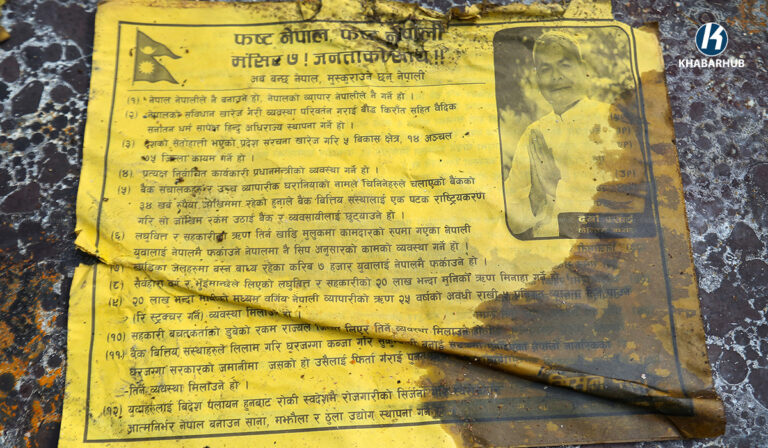 फष्ट नेपाल, फष्ट नेपाली
मंसिर ७ ! जनताको साथ !!
अब बन्छ नेपाल, मुस्कुराउने छन् नेपाली
(१) नेपाल नेपालीले नै बनाउने हो, नेपालको व्यापार नेपालीले नै गर्ने हो ।
(२) नेपालको संविधान खारेज गरी व्यवस्था परिवर्तन गराई बौद्ध किराँत सहित वैदिक
सनातन धर्म सापेक्ष हिन्दु अधिराज्य स्थापना गर्ने हो ।
(३) देशको सेतोहात्ती भएको प्रदेश संरचना खारेज गरि ५ बिकास क्षेत्र, १४ अञ्चल
७५ जिल्ला कायम गर्ने हो ।
(४) प्रत्यक्ष निर्वाचित कार्यकारी प्रधानमन्त्रीको व्यवस्था गर्ने हो ।
(५) बैंक संचालकहरु उच्च व्यापारिक घरानियाको नामले चिनिनेहरुले चलाएको बैंकको
३४ खर्ब रुपैया जोखिममा रहेको हुनाले बैंक बित्तिय संस्थालाई एक पटक राष्ट्रियकरण
गरि सो जोखिम रकम उठाई बैंक र व्यवसायीलाई छुट्याउने हो ।
(६) लघुवित्त र सहकारीको ऋण तिर्न खाडि मुलुकमा कामदारको रुपमा गएका नेपाली
युवालाई नेपालमै फर्काउने नेपालमा नै सिप अनुसारको कामको व्यवस्था गर्ने हो ।
(७) खाडीका जेलहरुमा बस्न बाध्य रहेका करिब ७ हजार युवालाई नेपालमै फर्काउने हो ।
(८) सर्वहारा वर्ग र भुईमान्छेले लिएको लघुवित्त र सहकारीको २० लाख भन्दा मुनिको ऋण मिनाहा गर्ने
(९) २० लाख भन्दा माथिको मध्यम वर्गिय नेपाली व्यापारीको ऋण २५ वर्षको अवधी राखी
(रि स्ट्रक्चर गर्ने) व्यवस्था मिलाउने हो ।
(१०) सहकारी बचतकर्ताको डुबेको रकम राज्यले लिएर तिर्ने व्यवस्था मिलाउने
(११) बैंक बित्तिय संस्थाहरुले लिलाम गरि घरजग्गा कब्जा गरि
घरजग्गा सरकारको जमानीमा जसको हो उसैलाई फिर्ता गराई
तिर्ने व्यवस्था मिलाउने हो ।
(१२) युवाहरुलाई बिदेश पलायन हुनबाट रोकी स्वदेशमै रोजगारीको सिर्जना
आत्मनिर्भर नेपाल बनाउन साना, मझौला र ठुला उद्योग स्थापना गर्ने
KHABARHUB